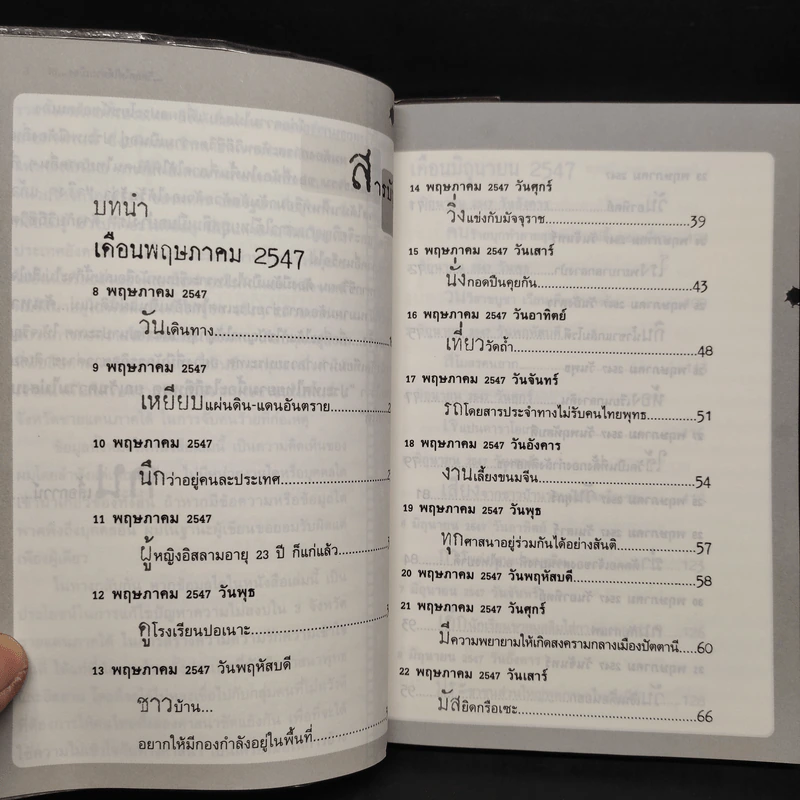 สารบั
บทนำ
เดือนพฤษภาคม 2547
8 พฤษภาคม 2547
วันเดินทาง
9 พฤษภาคม 2547
เหยียบแผ่นดิน-แดนอันตราย
10 พฤษภาคม 2547
นึกว่าอยู่คนละประเทศ
11 พฤษภาคม 2547
ผู้หญิงอิสลามอายุ 23 ปี ก็แก่แล้ว
12 พฤษภาคม 2547 วันพุธ
ดูโรงเรียนปอเนาะ
13 พฤษภาคม 2547 วันพฤหัสบดี
ชาวบ้าน...
อยากให้มีกองกำลังอยู่ในพื้นที่
14 พฤษภาคม 2547 วันศุกร์
วิ่งแข่งกับมัจจุราช 39
15 พฤษภาคม 2547 วันเสาร์
นั่งกอดปืนคุยกัน 43
16 พฤษภาคม 2547 วันอาทิตย์
เที่ยววัดถ้ำ 48
17 พฤษภาคม 2547 วันจันทร์
รถโดยสารประจำทางไม่รับคนไทยพุทธ 51
18 พฤษภาคม 2547 วันอังคาร
งานเลี้ยงขนมจีน 54
19 พฤษภาคม 2547 วันพุธ
ทุกศาสนาอยู่ร่วมกันได้อย่างสันติ 57
20 พฤษภาคม 2547 วันพฤหัสบดี 58
21 พฤษภาคม 2547 วันศุกร์
มีความพยายามให้เกิดสงครามกลางเมืองปัตตานี 60
22 พฤษภาคม 2547 วันเสาร์
มัสยิดกรือเซะ 66